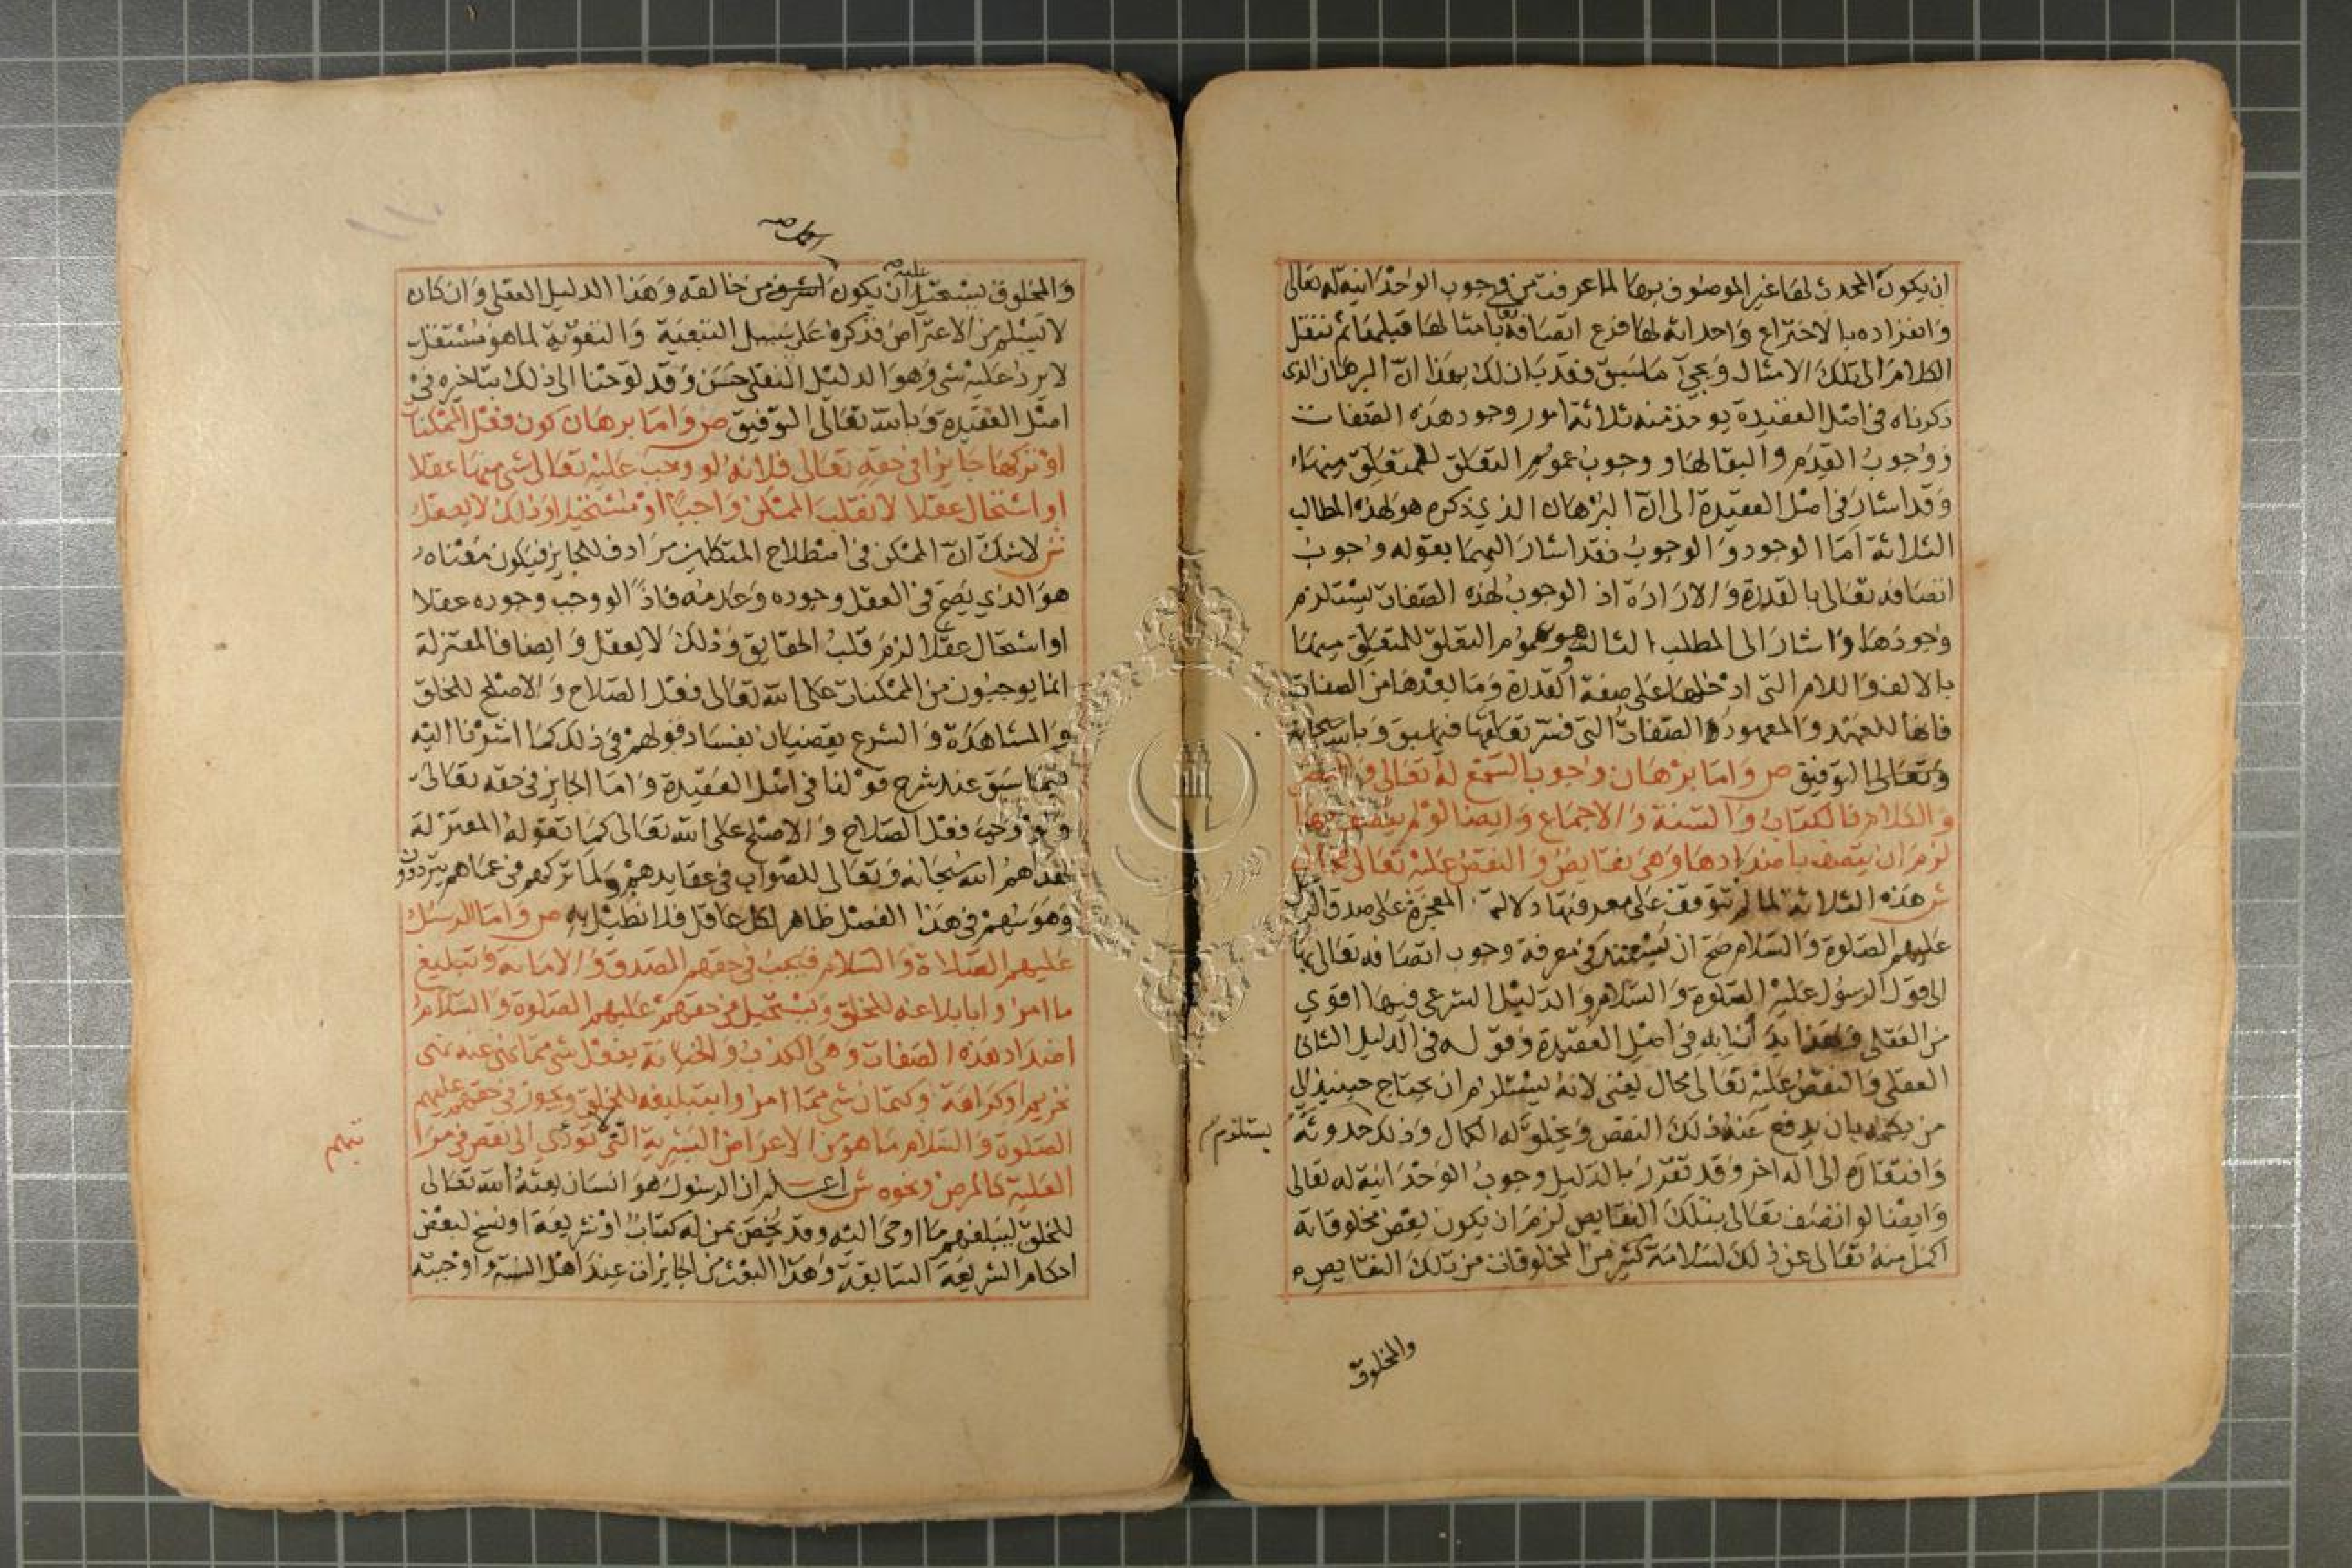 ان يكون المحدث لها غير الموصوف بها لما عرفت من وجوب الوحدانية له تعالى
وانفراده بالاختراع واحداثه لها فرع اتصافه بامثالها قبلها ثم ننقل
الكلام الى تلك الامثال ويجئ ما سبق فقد بان لك بهذا ان البرهان الذى
ذكرناه فى اصل العقيدة يوخذ منه ثلاثة امور وجود هذه الصفات
ووجوب القدم والبقا لها ووجوب عموم التعلق للمتعلق منها
وقد اشار فى اصل العقيدة الى ان البرهان الذي ذكره هو لهذه المطالب
الثلاثة اما الوجود والوجوب فقد اشار اليهما بقوله وجوب
اتصافه تعالى بالقدرة والارادة اذ الوجوب لهذه الصفات يستلزم
وجودها واشار الى المطلب الثالث وهو عموم التعلق للمتعلق منها
بالالف واللام التى ادخلها على صفة القدرة وما بعدها من الصفات
فانها للعهد والمعهود الصفات التى فسر تعلقها فيما سبق وبالله سبحانه
وتعالى التوفيق ص واما برهان وجوب السمع له تعالى والبصر
والكلام فالكتاب والسنة والاجماع وايضا لو لم يتصف بها
لزم ان يتصف باضدادها وهى نقايص والنقص عليه تعالى محال
ش هذه الثلاثة لما لم تتوقف على معرفتها دلالة المعجزة على صدق الرسل
عليهم الصلوة والسلام صح ان يستند فى معرفة وجوب اتصافه تعالى بها
الى قول الرسول عليه الصلوة والسلام والدليل الشرعى فيها اقوي
من العقلى ولهذا بدأنا به فى اصل العقيدة وقوله فى الدليل الثانى
العقلى والنقص عليه تعالى محال يعنى لانه يستلزم ان يحتاج حينيذ الي
من يكمله بان يدفع عنه ذلك النقص ويخلق له الكمال وذلك حدوثه
يستلزم
وافتقاره الى اله اخر وقد تقرر بالدليل وجوب الوحدانية له تعالى
وايضا لو اتصف تعالى بتلك النقايص لزم ان يكون بعض مخلوقاته
اكمل منه تعالى عن ذلك لسلامة كثير من المخلوقات من تلك النقايص
والمخلوق
اكمل صح
عليه
والمخلوق يستحيل ان يكون اشرف من خالقه وهذا الدليل العقلى وان كان
لا يسلم من الاعتراض فذكره على سبيل التبعية والتقوية لما هو مستقل
لا يرد عليه شى وهو الدليل النقلى حسن وقد لوحنا الى ذلك بتاخيره فى
اصل العقيدة وبالله تعالى التوفيق ص واما برهان كون فعل الممكنات
او تركها جايزا فى حقه تعالى فلانه لو وجب عليه تعالى شى منها عقلا
او استحال عقلا لانقلب الممكن واجبا او مستحيلا وذلك لا يعقل
ش لا شك ان الممكن فى اصطلاح المتكلمين مرادف للجايز فيكون معناه
هو الذي يصح فى العقل وجوده وعدمه فاذا لو وجب وجوده عقلا
او استحال عقلا لزم قلب الحقايق وذلك لا يعقل وايضا فالمعتزلة
انما يوجبون من الممكنات على الله تعالى فعل الصلاح والاصلح للخلق
والمشاهدة والشرع يقضيان بفساد قولهم فى ذلك كما اشرنا اليه
فيما سبق عند شرح قولنا فى اصل العقيدة واما الجايز فى حقه تعالى
ولو وجب فعل الصلاح والاصلح على الله تعالى كما تقوله المعتزلة
لهداهم الله سبحانه وتعالى للصواب فى عقايدهم ولما تركهم فى عماهم يترددون
وهوسهم فى هذا الفصل ظاهر لكل عاقل فلا نطيل به ص واما الرسل
عليهم الصلاة والسلام فيجب فى حقهم الصدق والامانة وتبليغ
ما امروا بابلاغه للخلق ويستحيل فى حقهم عليهم الصلوة والسلام
اضداد هذه الصفات وهى الكذب والخيانة بفعل شى مما نهى عنه نهى
تحريم او كراهة وكتمان شى مما امروا بتبليغه للخلق ويجوز فى حقهم عليهم
الصلوة والسلام ما هو من الاعراض البشرية التى لا تؤدي الى نقص فى مرا
تبهم
العلية كالمرض ونحوه ش اعلم ان الرسول هو انسان بعثه الله تعالى
للخلق ليبلغهم ما اوحى اليه وقد يخص بمن له كتاب او شريعة او نسخ لبعض
احكام الشريعة السابقة وهذا البعث من الجايزات عند اهل السنة واوجبته